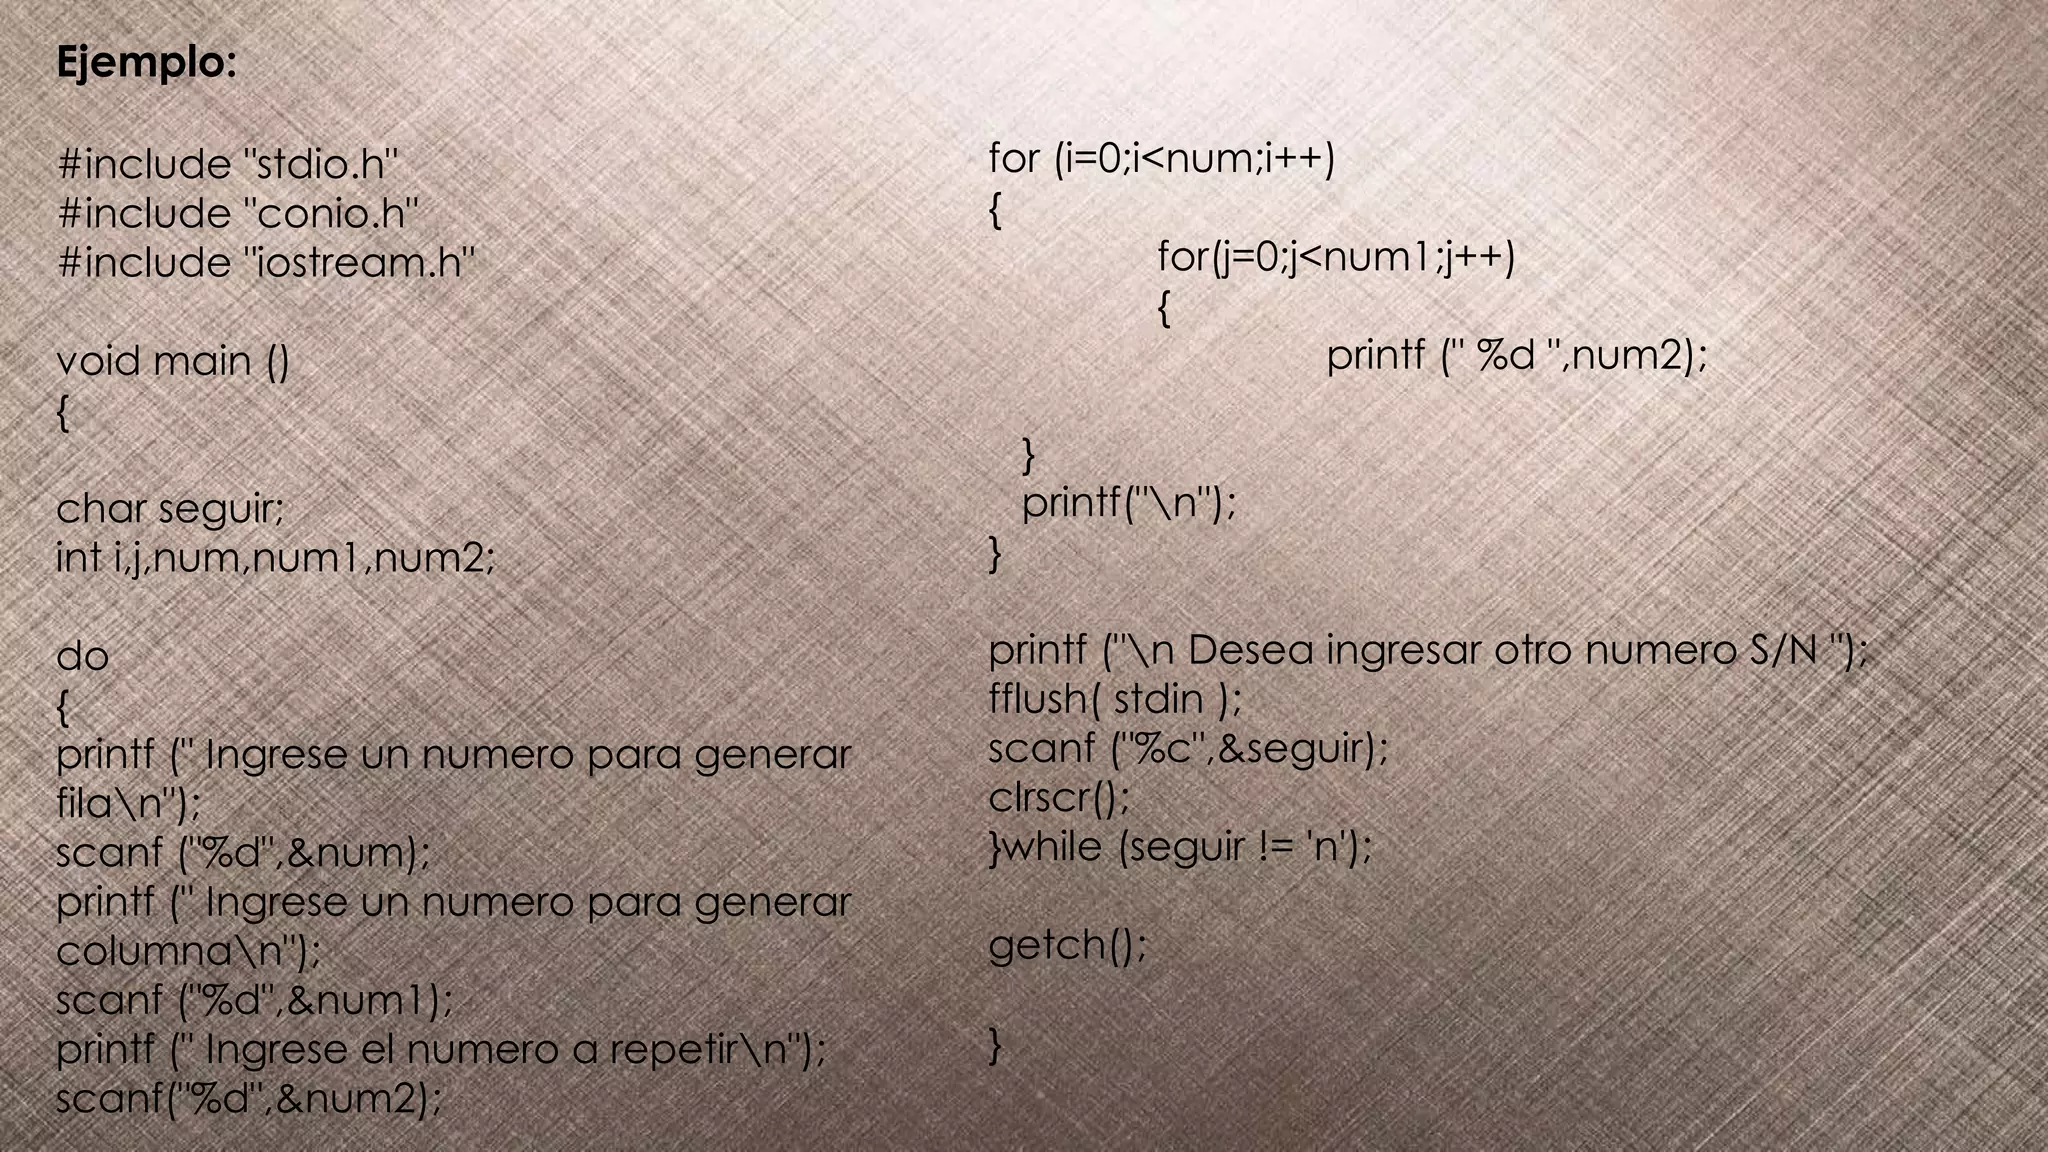 Ejemplo:
#include "stdio.h"
#include "conio.h"
#include "iostream.h"
void main ()
{
char seguir;
int i,j,num,num1,num2;
do
{
printf (" Ingrese un numero para generar
fila\n");
scanf ("%d",&num);
printf (" Ingrese un numero para generar
columna\n");
scanf ("%d",&num1);
printf (" Ingrese el numero a repetir\n");
scanf("%d",&num2);
for (i=0;i<num;i++)
{
for(j=0;j<num1;j++)
{
printf (" %d ",num2);
}
printf("\n");
}
printf ("\n Desea ingresar otro numero S/N ");
fflush( stdin );
scanf ("%c",&seguir);
clrscr();
}while (seguir != 'n');
getch();
}